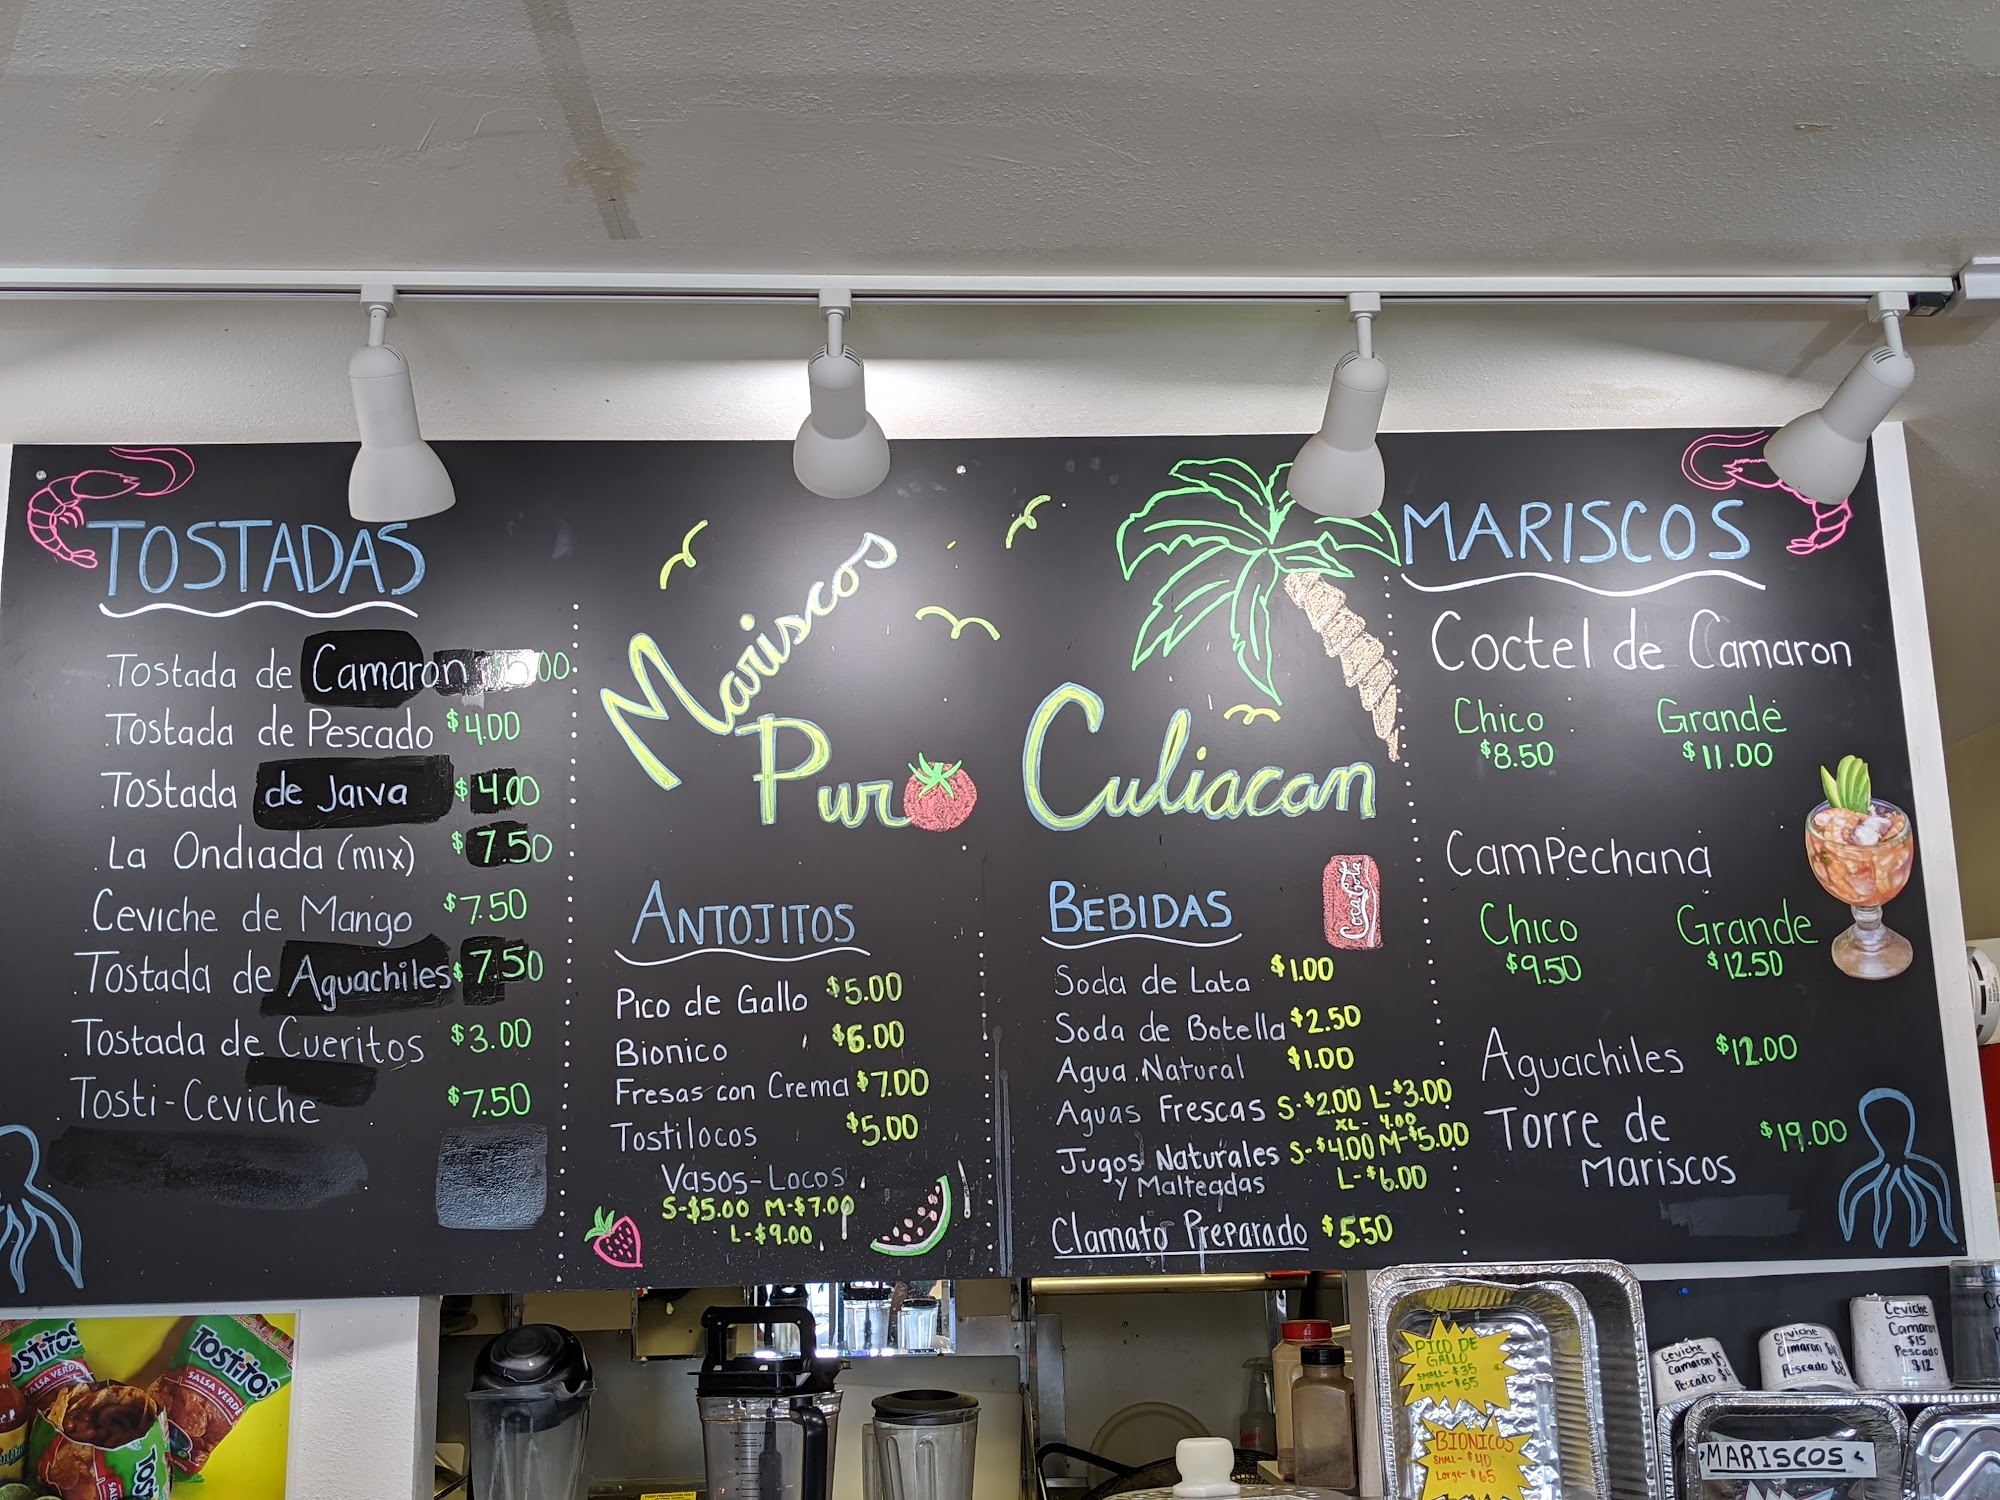 TOSTADAS
.Tostada de Camaron $5.00
.Tostada de Pescado $4.00
.Tostada de Jaiva $4.00
.La Ondiada (mix) $7.50
.Ceviche de Mango $7.50
.Tostada de Aguachiles $7.50
.Tostada de Cueritos $3.00
.Tosti-Ceviche $7.50
Mariscos
Puro
Culiacan
ANTOJITOS
Pico de Gallo $5.00
Bionico $6.00
Fresas con Crema $7.00
Tostilocos $5.00
Vasos-Locos
S-$5.00 M-$7.00
L-$9.00
BEBIDAS
CocaCola
Soda de Lata $1.00
Soda de Botella $2.50
Agua Natural $1.00
Aguas Frescas S-$2.00 L-$3.00
XL- 4.00
Jugos Naturales S-$4.00 M-$5.00
y Malteadas L-$6.00
Clamato Preparado $5.50
MARISCOS
Coctel de Camaron
Chico Grande
$8.50 $11.00
Campechana
Chico Grande
$9.50 $12.50
Aguachiles $12.00
Torre de $19.00
Mariscos
TOSTITOS
SALSA VERDE
TOSTITOS
SALSA VERDE
PICO DE
GALLO
SMALL-$35
Large-$55
BIONICOS
SMALL-$40
Large-$65
Ceviche
Camaron $5
Pescado
Ceviche
Camaron
Pescado $8
Ceviche
Camaron
$15
Pescado
$12
MARISCOS